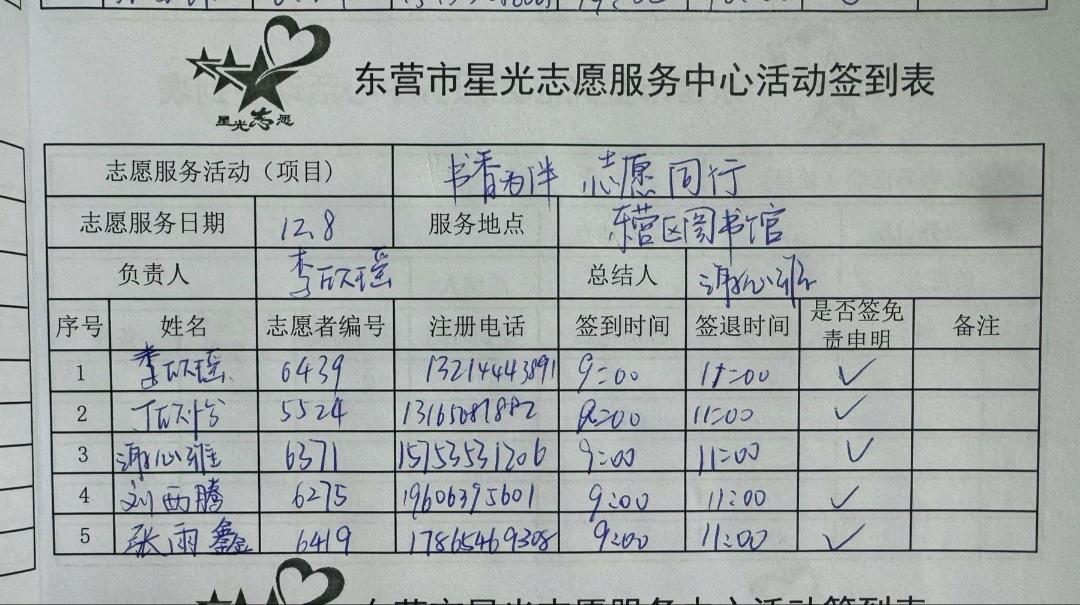 星光志愿
东营市星光志愿服务中心活动签到表
志愿服务活动（项目） 书香为伴 志愿同行
志愿服务日期 12.8 服务地点 东营区图书馆
负责人 李欣瑶 总结人 谢心雅
序号 姓名 志愿者编号 注册电话 签到时间 签退时间 是否签免责申明 备注
1 李欣瑶 6439 13214443891 9:00 11:00 ✓
2 5524 9:00 11:00 ✓
3 谢心雅 6371 15753531206 9:00 11:00 ✓
4 刘西腾 6275 19606395601 9:00 11:00 ✓
5 张雨鑫 6419 17865469308 9:00 11:00 ✓
东营市星光志愿服务中心活动签到表